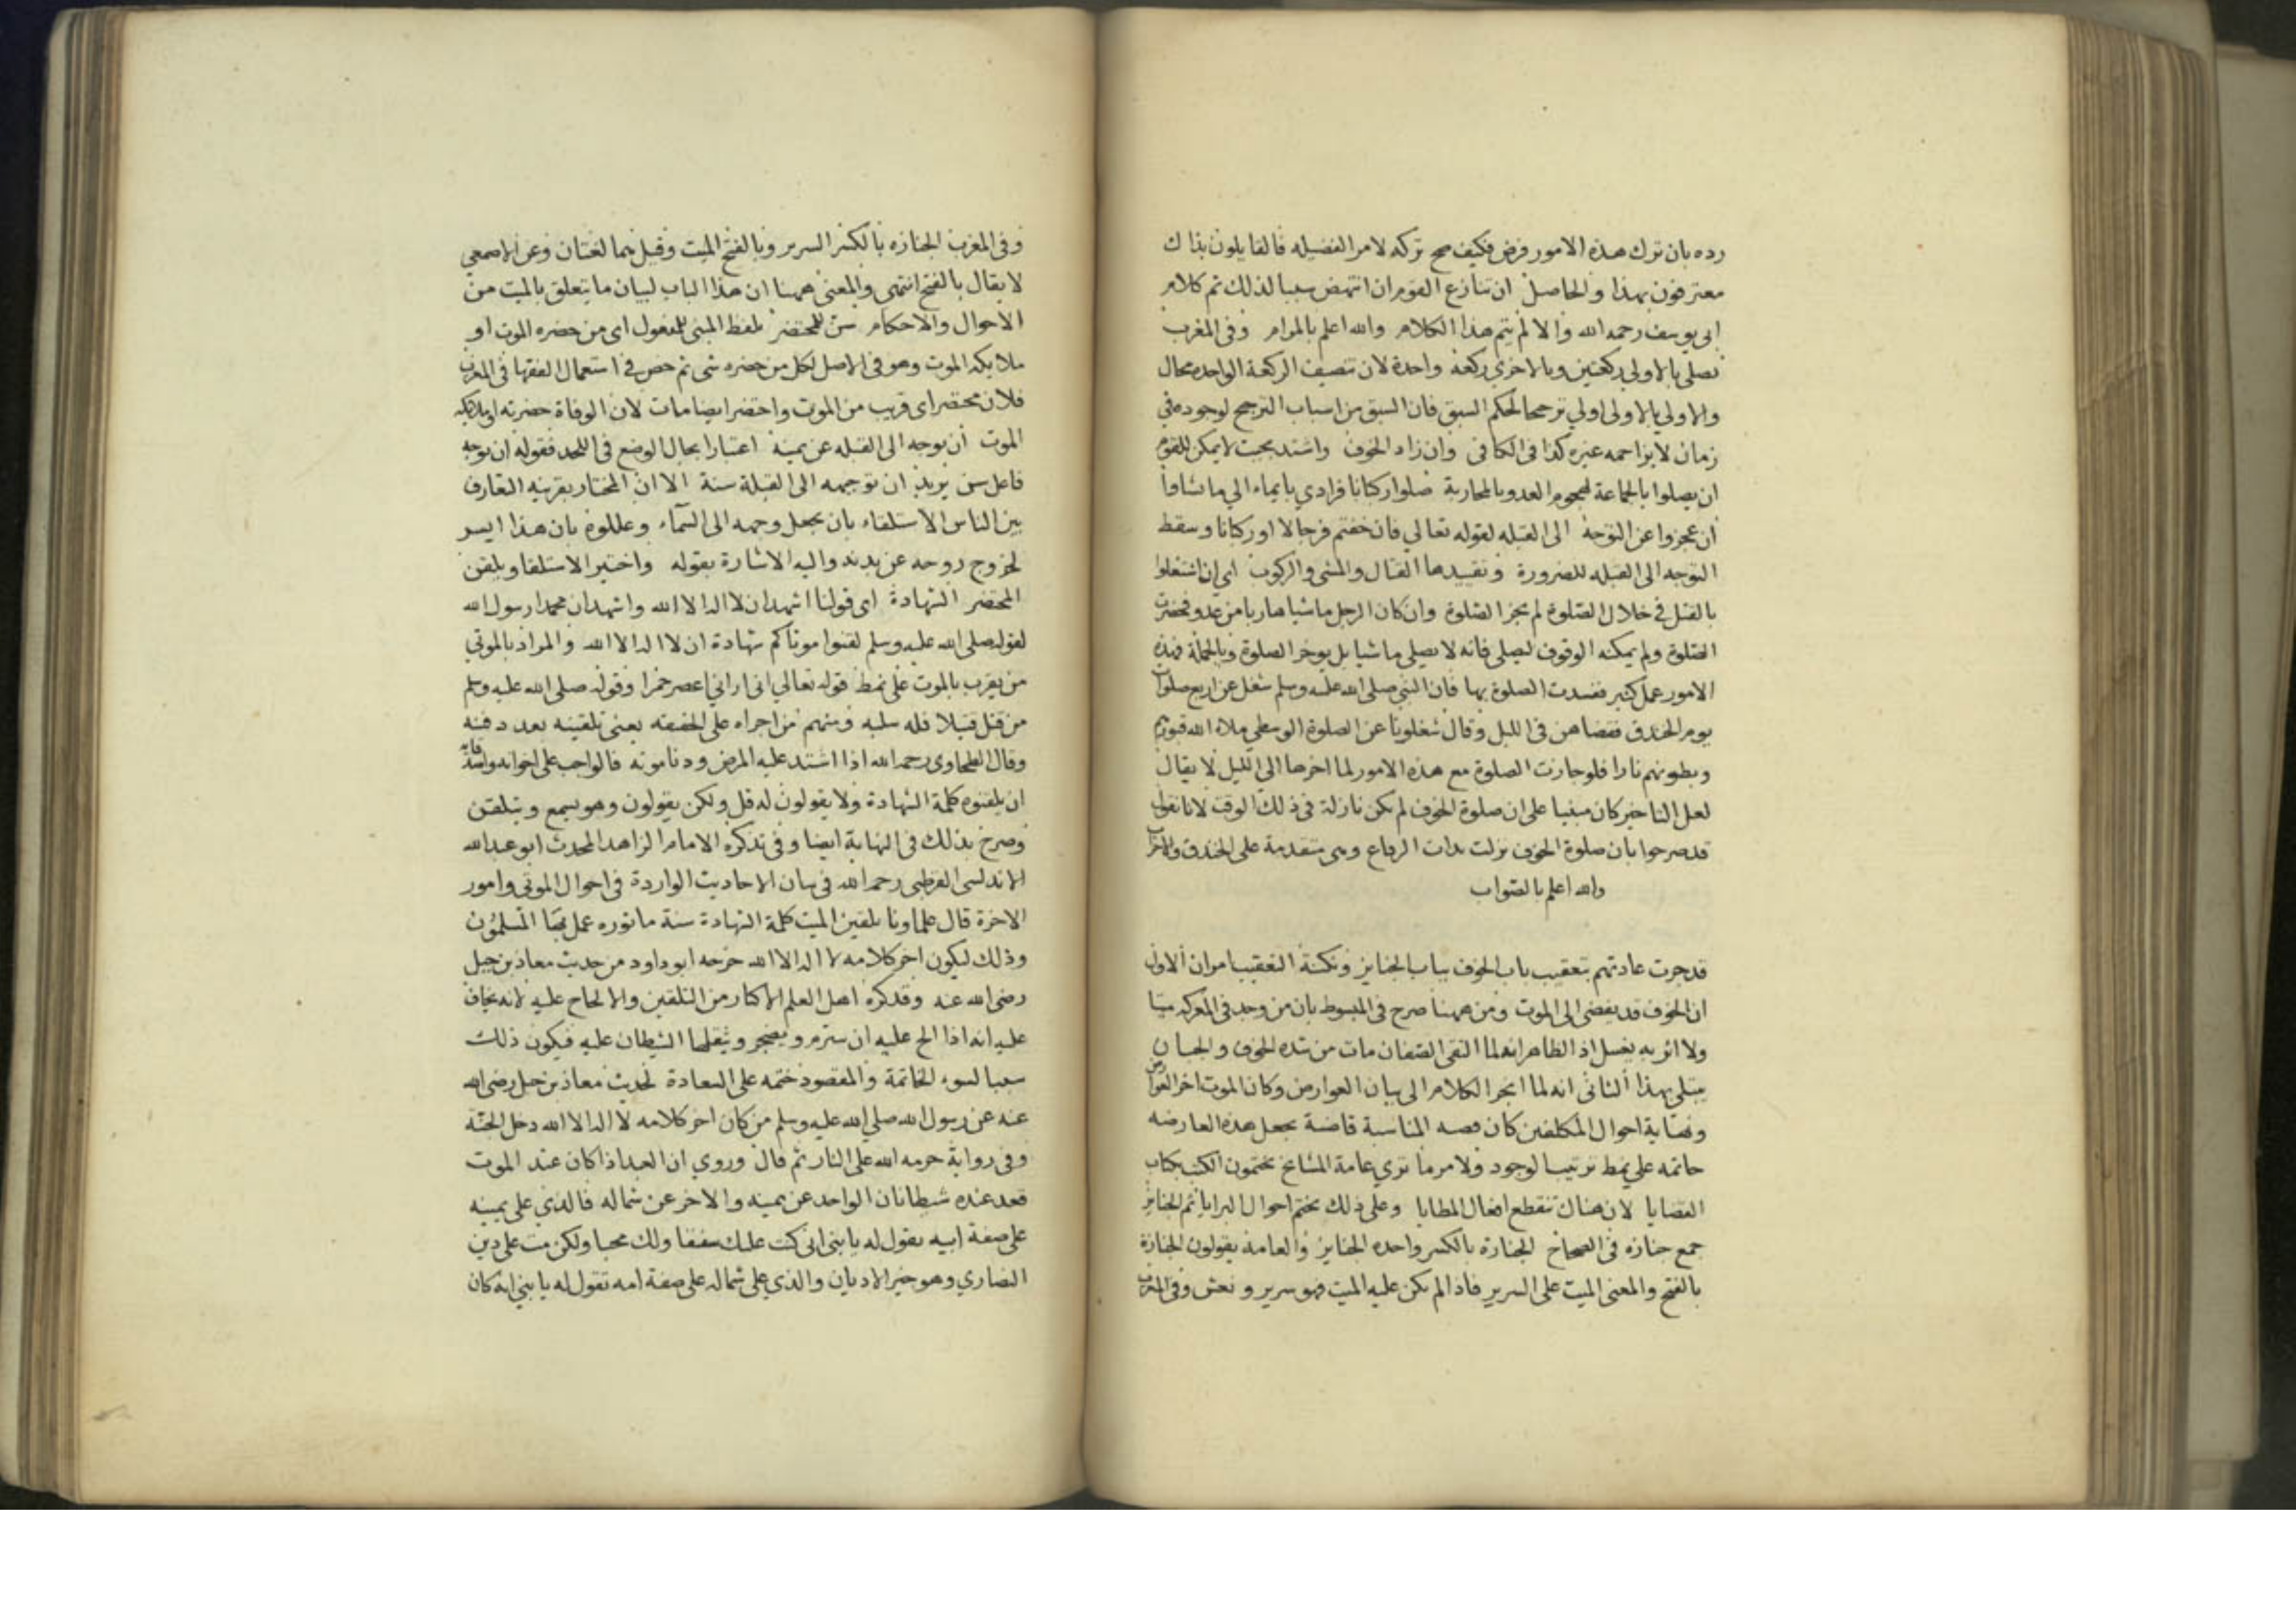 رده بان ترك هذه الامور فرض فكيف صح تركه لامر الفضيله فالقايلون بذاك
معترفون بهذا والحاصل ان تنازع القوم ان انتهض سببا لذلك تم كلام
ابى يوسف رحمه الله والا لم يتم هذا الكلام والله اعلم بالمرام وفى المغرب
تصلى بالاولى ركعتين وبالاخرى ركعة واحدة لان تنصيف الركعة الواحده محال
والاولى بالاولى اولى ترجحا لحكم السبق فان السبق من اسباب الترجح لوجوده فى
زمان لا يزاحمه غيره كذا فى الكافى وان زاد الخوف واشتد بحيث لا يمكن للقوم
ان يصلوا بالجماعة لهجوم العدو بالمحاربة صلوا ركبانا فرادي بايماء الى ما شاوا
ان عجزوا عن التوجه الى القبله لقوله تعالي فان خفتم فرجالا او ركبانا وسقط
التوجه الى القبله للضرورة وتفسيدها القتال والمشى والركوب اى ان اشتغلوا
بالقتل فى خلال الصلوة لم يجز الصلوة وان كان الرجل ماشيا هاربا من عدو فحضرت
الصلوة ولم يمكنه الوقوف ليصلى فانه لا يصلى ماشيا بل يوخر الصلوة وبالجملة فهذه
الامور عمل كثير ففسدت الصلوة بها فان النبى صلى الله عليه وسلم شغل عن اربع صلوات
يوم الخندق فقضاهن فى الليل وقال شغلونا عن الصلوة الوسطى ملاء الله قبورهم
وبطونهم نارا فلو جازت الصلوة مع هذه الامور لما اخرها الى الليل لا يقال
لعل التاخير كان مبنيا على ان صلوة الخوف لم تكن نازلة فى ذلك الوقت لانا نقول
قد صرحوا بان صلوة الخوف نزلت بذات الرقاع وهى متقدمة على الخندق والاحزاب
والله اعلم بالصواب
قد جرت عادتهم بتعقيب باب الخوف بباب الجنايز ونكتة التعقيب امران الاول
ان الخوف قد يفضى الى الموت ومن ههنا صرح فى المبسوط بان من وجد فى المعركه ميتا
ولا اثر به يغسل اذ الظاهر انه لما التقى الصفان مات من شده الخوف والجبان
يبتلى بهذا الثانى انه لما انجر الكلام الى بيان العوارض وكان الموت اخر العوارض
ونهاية احوال المكلفين كان المناسبة قاضية بجعل هذه العارضه
خاتمه على نمط ترتيب الوجود ولامر ما ترى عامة المشايخ يختمون الكتب بكتاب
القضايا لان هناك تنقطع افعال المطايا وعلى ذلك يختم احوال البرايا ثم الجنايز
جمع جنازه فى الصحاح الجنازة بالكسر واحدة الجنايز والعامة يقولون الجنازة
بالفتح والمعنى الميت على السرير فاذا لم يكن عليه الميت فهو سرير ونعش وفى المغرب
وفى المغرب الجنازه بالكسر السرير وبالفتح الميت وقيل هما لغتان وعن الاصمعي
لا يقال بالفتح انتهى والمعنى ههنا ان هذا الباب لبيان ما يتعلق بالميت من
الاحوال والاحكام سن للمحتضر بلفظ المبنى للمفعول اى من حضره الموت او
ملايكه الموت وهو فى الاصل لكل من حضره شى ثم خص فى استعمال الفقها فى المغرب
فلان محتضر اى قريب من الموت واحتضر ايضا مات لان الوفاة حضرته او ملايكه
الموت ان يوجه الى القبله عن يمينه اعتبارا بحال الوضع فى اللحد فقوله ان يوجه
فاعل سن يريد ان توجيهه الى القبلة سنة الا ان المختار بقرينه التعارف
بين الناس الاستلقاء بان يجعل وجهه الى السماء وعللوه بان هذا ايسر
لخروج روحه عن بدنه واليه الاشارة بقوله واختير الاستلقا ويلقن
المحتضر الشهادة اى قولنا اشهد ان لا اله الا الله واشهد ان محمدا رسول الله
لقوله صلى الله عليه وسلم لقنوا موتاكم شهادة ان لا اله الا الله والمراد بالموتي
من يقرب بالموت على نمط قوله تعالي انى ارانى اعصر خمرا وقوله صلى الله عليه وسلم
من قتل قتيلا فله سلبه ومنهم من اجراه على الحقيقه يعنى تلقينه بعد دفنه
وقال الطحاوى رحمه الله اذا اشتد عليه المرض ودنا موته فالواجب على اخوانه واصدقايه
ان يلقنوه كلمة الشهادة ولا يقولون له قل ولكن يقولون وهو يسمع ويتلقن
وصرح بذلك فى النهاية ايضا وفى تذكره الامام الزاهد المحدث ابو عبد الله
الاندلسى القرطبى رحمه الله فى بيان الاحاديث الواردة فى احوال الموتى وامور
الاخرة قال علماونا تلقين الميت كلمة الشهادة سنة ماثوره عمل بها المسلمون
وذلك ليكون اخر كلامه لا اله الا الله خرجه ابو داود من حديث معاذ بن جبل
رضى الله عنه وقد كره اهل العلم الاكثار من التلقين والالحاح عليه لانه يخاف
عليه انه اذا الح عليه ان يتبرم ويضجر ويثقلها الشيطان عليه فيكون ذلك
سببا لسوء الخاتمة والمقصود ختمه على السعادة لحديث معاذ بن جبل رضى الله
عنه عن رسول الله صلى الله عليه وسلم من كان اخر كلامه لا اله الا الله دخل الجنة
وفى رواية حرمه الله على النار ثم قال وروي ان العبد اذا كان عند الموت
قعد عنده شيطانان الواحد عن يمينه والاخر عن شماله فالذي على يمينه
على صفة ابيه يقول له يا بنى انى كنت عليك شفيقا ولك محبا ولكن مت على دين
النصاري وهو خير الاديان والذي على شماله على صفة امه تقول له يا بني انه كان